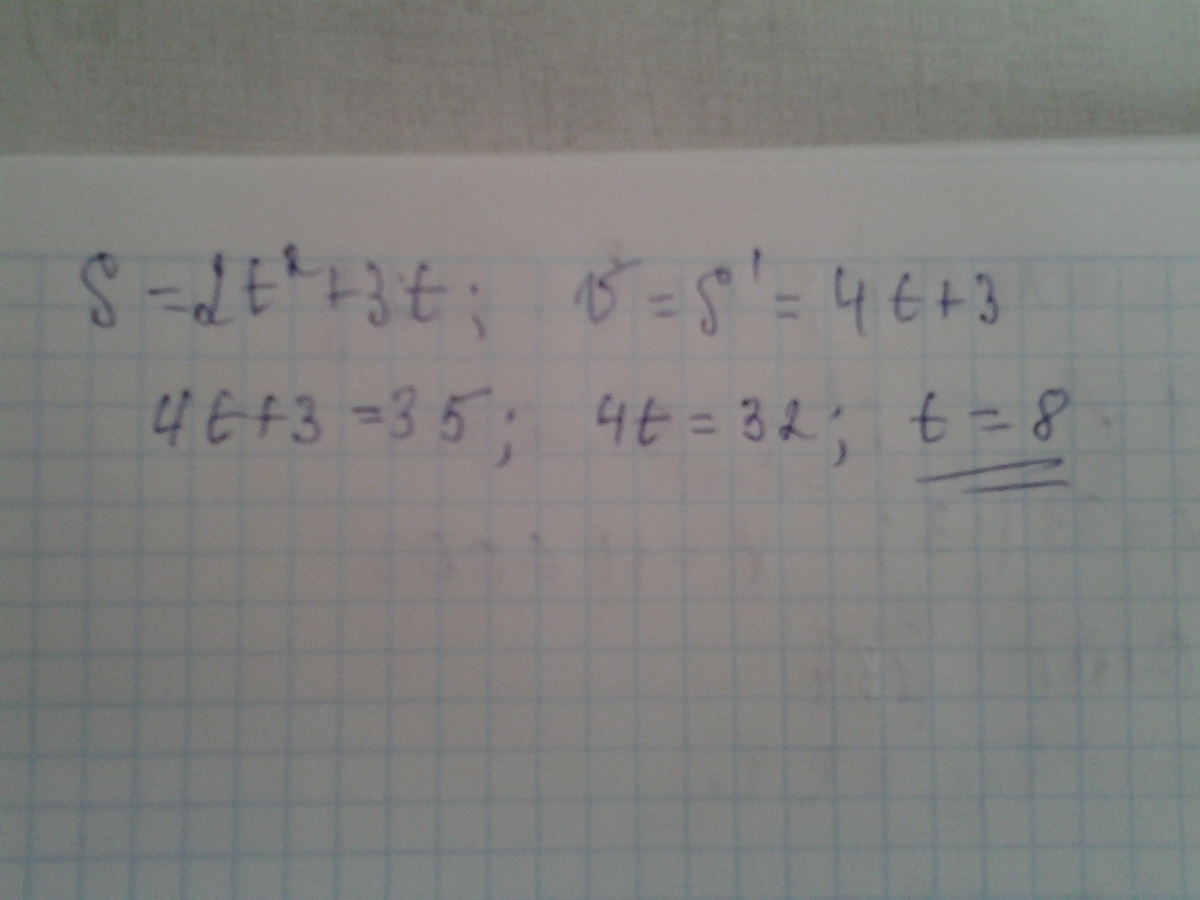 S = 2t² + 3t; v = S' = 4t + 3
4t + 3 = 35; 4t = 32; t = 8